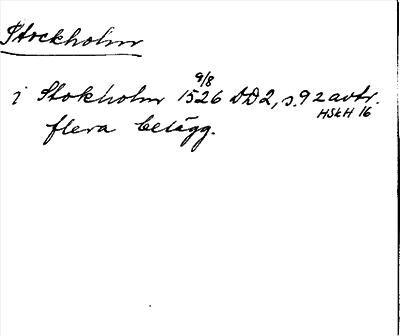 Stockholm
9/8
i Stokholm 1526 DD2, s.92 avtr.
HSkH 16
flera belägg.